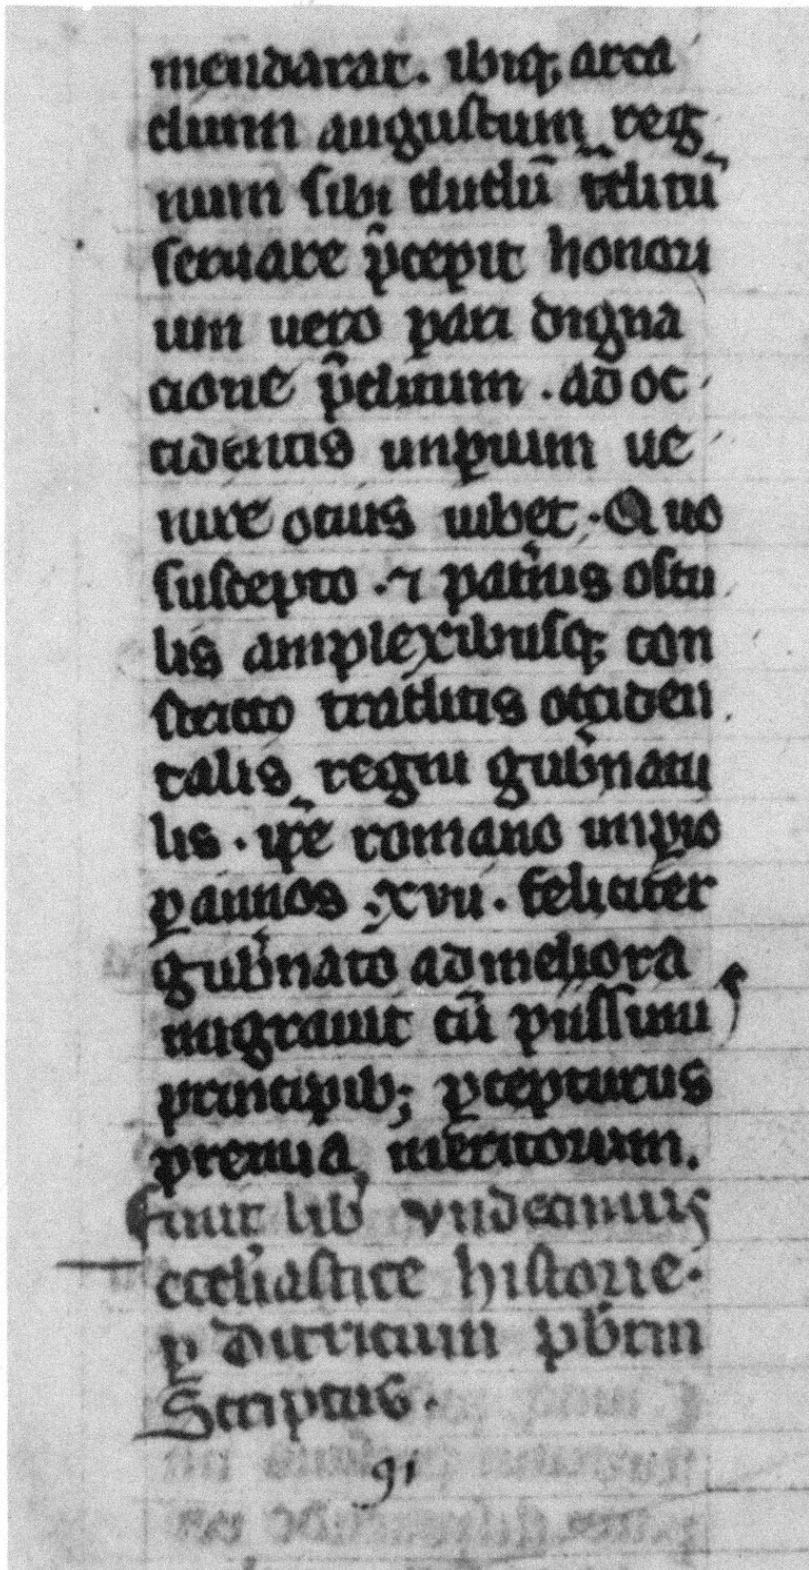 mendarat. ibiq; arca
dium augustum reg
num sibi dudū t̄ditū
seruare p̄cepit honori
um uero pari digna
cione p̄ditum . ad oc
cidentis imꝑium ue
nire ocius iubet . Quo
suscepto . ⁊ pat̄nis oscu
lis amplexibusq; con
stricto traditis occiden
talis regni gub̄nacu
lis . ip̄e romano imꝑio
ꝑ annos . xvii . feliciter
gub̄nato ad meliora
migrauit cū piissimis
principib; ꝑcepturus
premia meritorum.
finit lib' vndecimus
eccl'iastice historie .
ꝑ Ditricum p̄b̄rm
Scriptus .
91